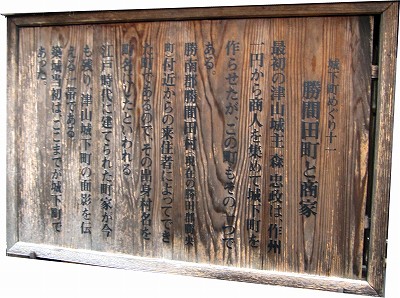 城下町めぐり十一
勝間田町と商家
最初の津山城主、森忠政は、作州
一円から商人を集めて城下町を
作らせたが、この町もその一つで
ある。
勝南郡勝間田村(現在の勝田郡勝央
町)付近からの来住者によってでき
た町であるので、その出身村名を
町名にしたといわれる。
江戸時代に建てられた町家が今
も残り、津山城下町の面影を伝
える一帯である。
築城当初は、ここまでが城下町で
あった。